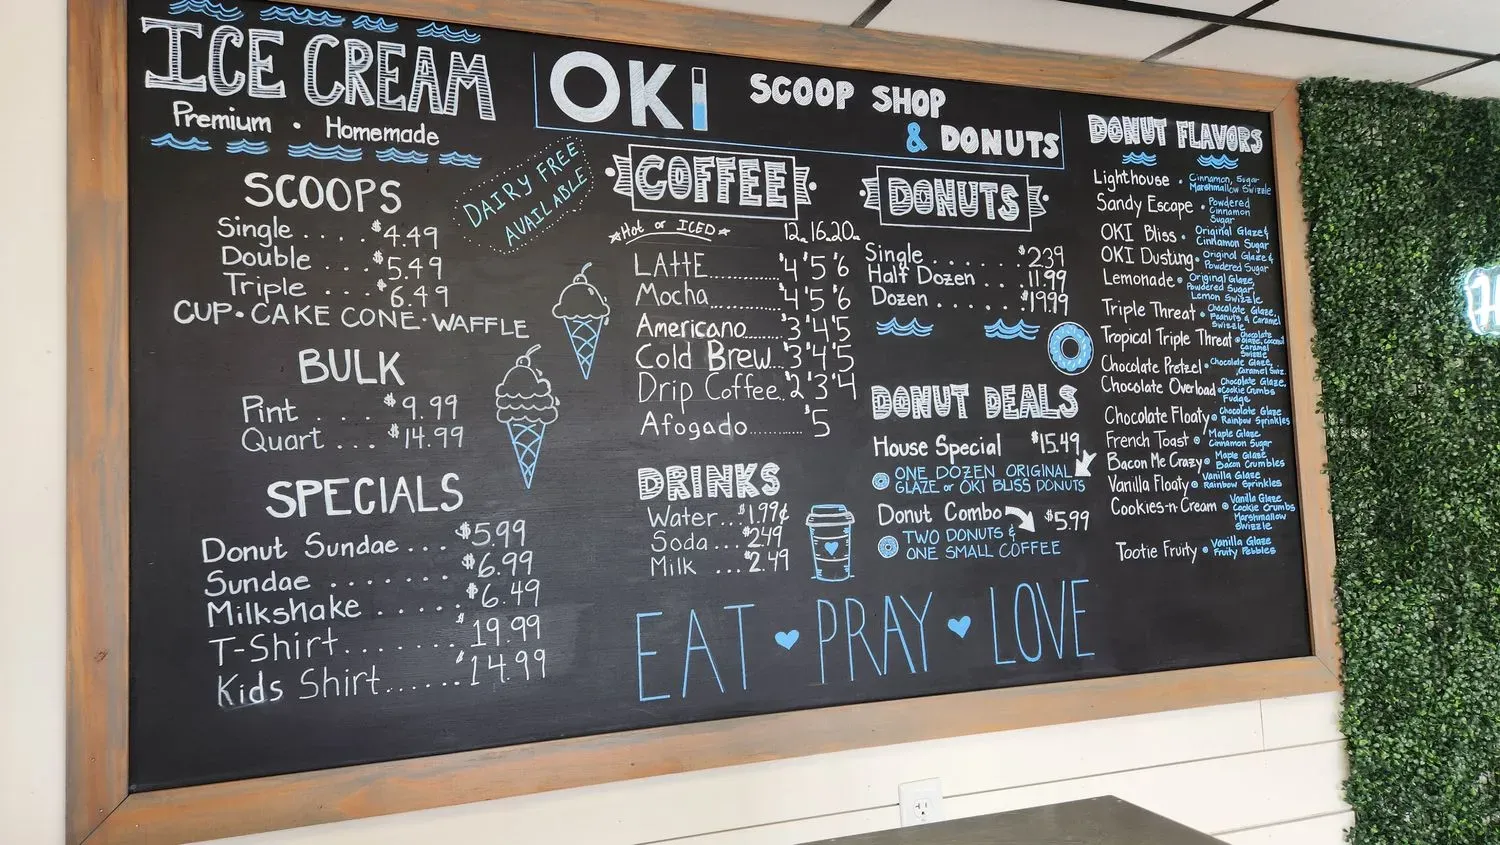 ICE CREAM
Premium • Homemade
SCOOPS
Single .... $4.49
Double ... $5.49
Triple .... $6.49
CUP • CAKE CONE • WAFFLE
DAIRY FREE
AVAILABLE
BULK
Pint .... $9.99
Quart ... $14.99
SPECIALS
Donut Sundae ... $5.99
Sundae ........ $6.99
Milkshake ..... $6.49
T-Shirt....... $19.99
Kids Shirt...... $14.99
OKI SCOOP SHOP
& DONUTS
COFFEE
Hot or ICED 12 16 20
LATTE.......... $4 $5 $6
Mocha.......... $4 $5 $6
Americano.......... $3 $4 $5
Cold Brew... $3 $4 $5
Drip Coffee.. $2 $3 $4
Afogado.......... $5
DRINKS
Water... $1.99¢
Soda ... $2.49
Milk ... $2.49
DONUTS
Single ...... $2.39
Half Dozen ... 11.99
Dozen ...... $19.99
DONUT DEALS
House Special $15.49
ONE DOZEN ORIGINAL
GLAZE or OKI BLISS DONUTS
Donut Combo $5.99
TWO DONUTS &
ONE SMALL COFFEE
EAT PRAY LOVE
DONUT FLAVORS
Lighthouse • Cinnamon, Sugar
Marshmallow Swizzle
Sandy Escape • Powdered
Cinnamon
Sugar
OKI Bliss • Original Glaze &
Cinnamon Sugar
OKI Dusting • Original Glaze &
Powdered Sugar
Lemonade • Original Glaze,
Powdered Sugar,
Lemon Swizzle
Triple Threat • Chocolate Glaze,
Peanuts & Caramel
Swizzle
Tropical Triple Threat • Chocolate
Glaze, coconut
Caramel
Swizzle
Chocolate Pretzel • Chocolate Glaze,
Caramel Swiz.
Chocolate Overload • Chocolate Glaze,
Cookie Crumbs
Fudge
Chocolate Floaty • Chocolate Glaze
Rainbow Sprinkles
French Toast • Maple Glaze
Cinnamon Sugar
Bacon Me Crazy • Maple Glaze
Bacon Crumbles
Vanilla Floaty • Vanilla Glaze
Rainbow Sprinkles
Cookies-n-Cream • Vanilla Glaze
Cookie Crumbs
Marshmallow
Swizzle
Tootie Fruity • Vanilla Glaze
Fruity Pebbles